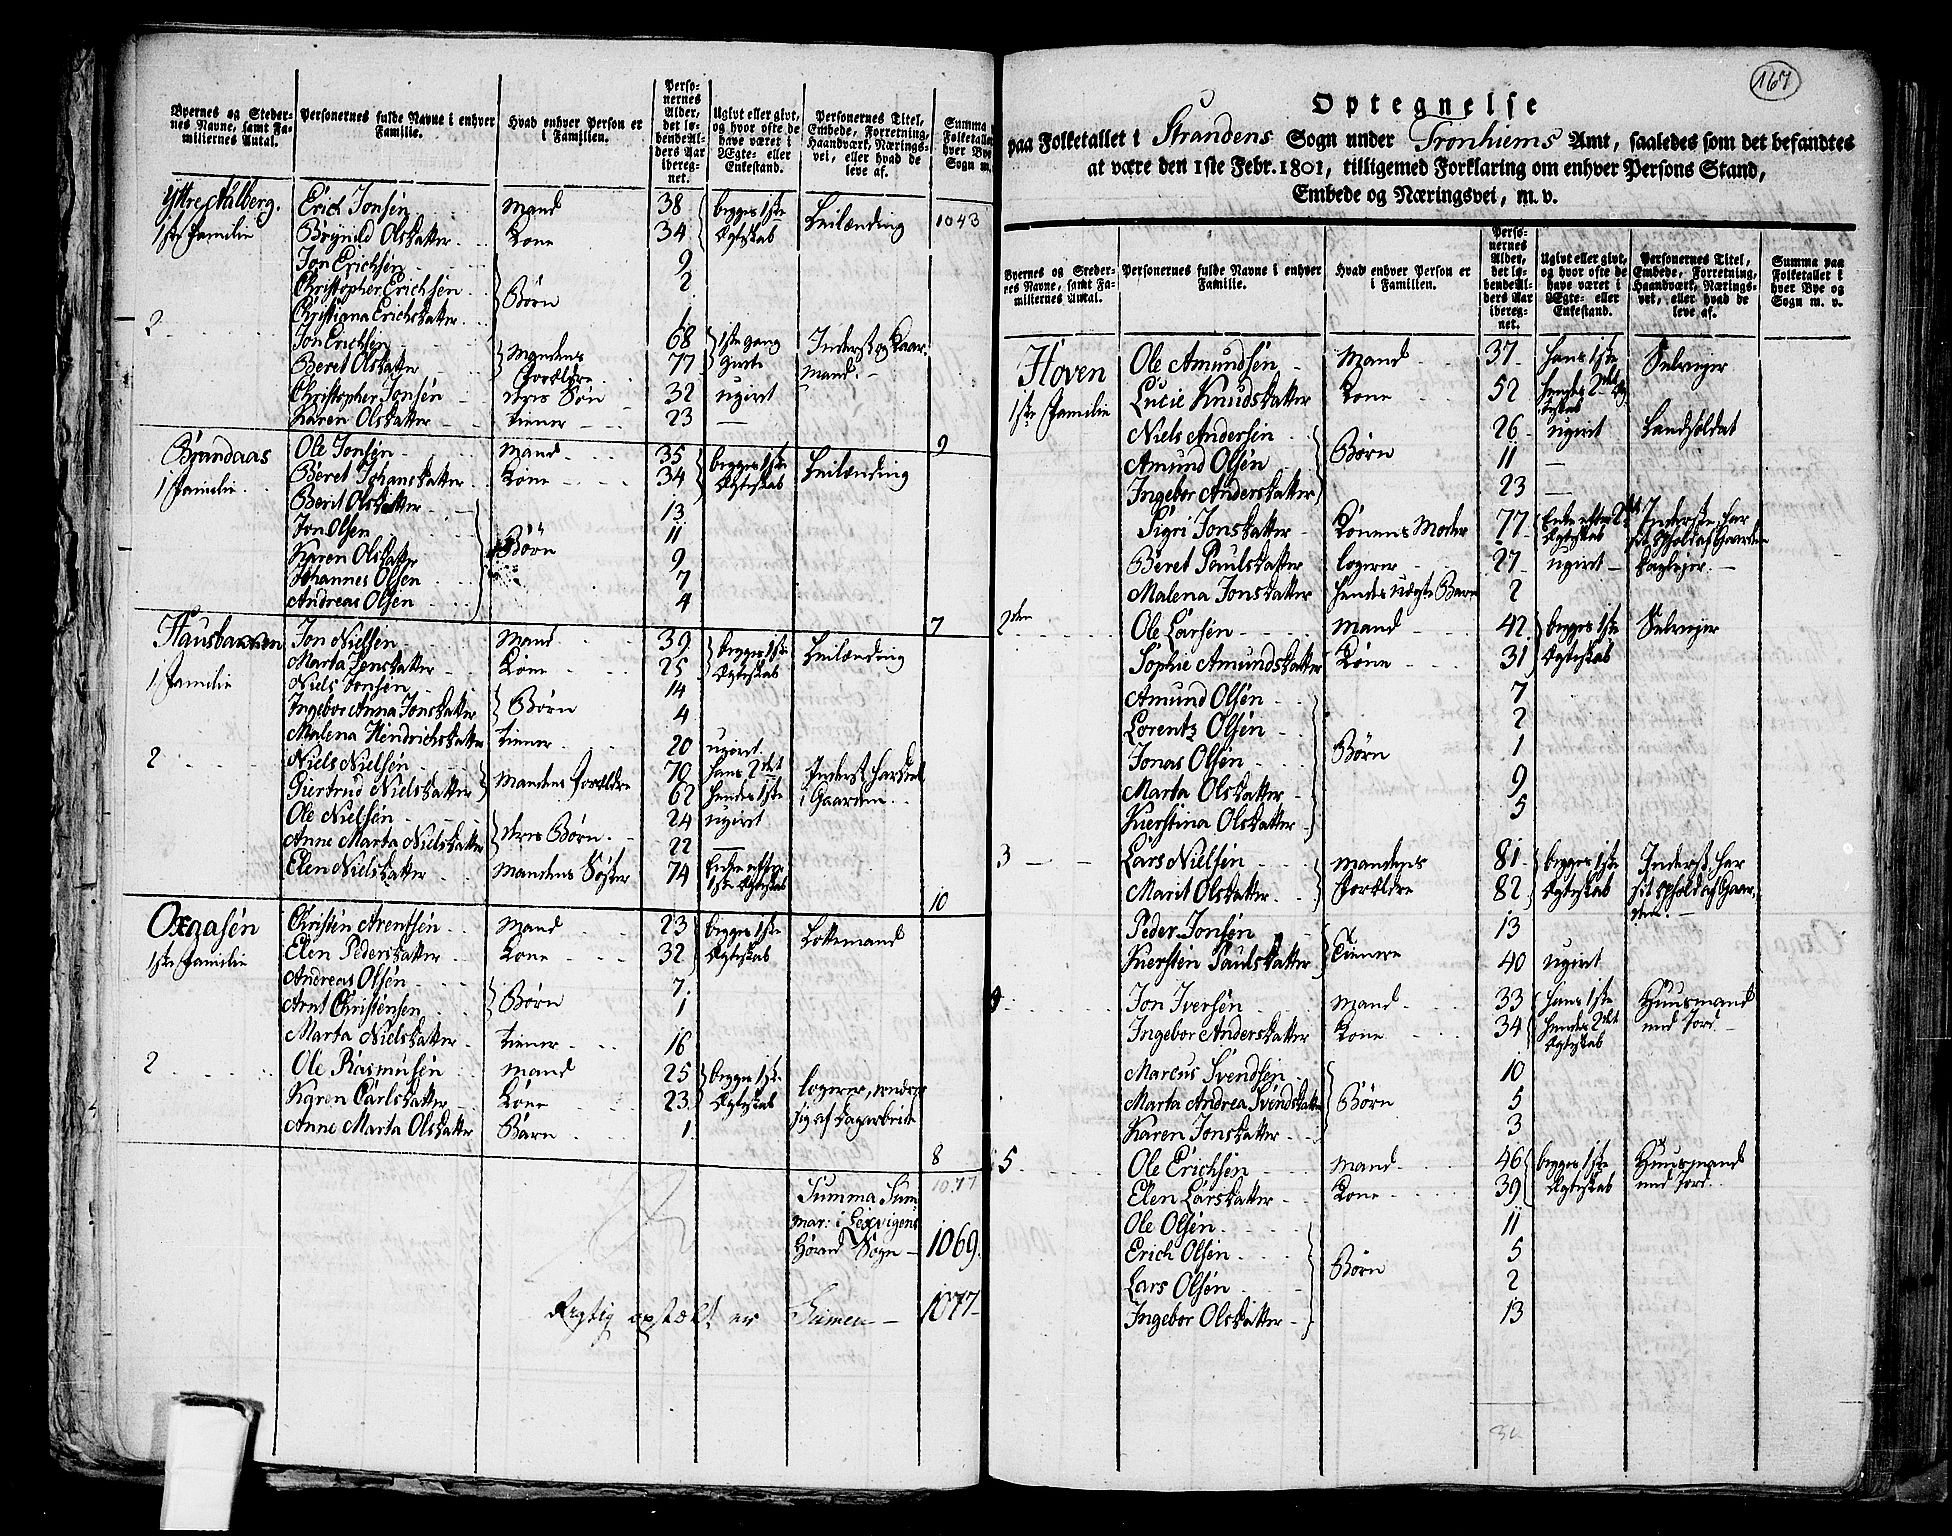 Byernes og Steder- nes Navne, samt Fa- miliernes Antal. | Personernes fulde Navne i enhver Familie. | Hvad enhver Person er i Familien. | Perso- nernes Alder, det lø- bende Al- ders Aar ibereg- net. | Ugivt eller givt, og hvor ofte de have været i Ægte- eller Enkestand. | Personernes Titel, Embede, Forretning, Haandværk, Nærings- vei, eller hvad de leve af. | Summa Folketallet hver Bye Sogn m.
Yttre Aalberg. | Erich Jonsen | Mand | 38 | begges 1ste | Leilænding | 1043
1ste Familie | Brynild Olsdatter | Kone | 34 | Ægteskab
Jon Erichsen | Børn | 9
Christopher Erichsen | 2
Christiana Erichsdatter | 1
2 | Jon Erichsen | Mandens | 68 | 1ste gang | Inderst og Kaar-
Beret Olsdatter | Forældre | 77 | givte | mand.
Christopher Jonsen | dris Søn | 32 | ugivt
Karen Olsdatter | tiener | 23 | — | 9
Brandaas | Ole Jonsen | Mand | 35 | begges 1ste | Leilænding
1 Familie | Beret Johansdatter | Kone | 34 | Ægteskab
Berit Olsdatter | Børn | 13
Jon Olsen | 11
Karen Olsdatter | 9
Johannes Olsen | 7
Andreas Olsen | 4 | 7
Jon Nielsen | Mand | 39 | begges 1ste | Leilænding
1 Familie | Marta Jonsdatter | Kone | 25 | Ægteskab
Niels Jonsen | Børn | 14
Ingebor Anna Jonsdatter | 4
Malena Hendrichsdatter | tiener | 20 | ugivt
2 | Niels Nielsen | Mandens Forældre | 70 | hans 2det | Inderst har deel
Giertrud Nielsdatter | 62 | hendes 1ste | i Gaarden
Ole Nielsen | dris Børn | 24 | ugivt
Anne Marta Nielsdatter | 22 | —
Elen Nielsdatter | Mandens Søster | 74 | Enke efter 1ste Ægteskab | 10
Oxaasen | Christen Arentsen | Mand | 23 | begges 1ste
1ste Familie | Elen Pedersdatter | Kone | 32 | Ægteskab
Andreas Olsen | Børn | 7
Arnt Christensen | 1
Marta Nielsdatter | tiener | 16
2 | Ole Rasmusen | Mand | 25 | begges 1ste | logerer, ernærer
Karen Carlsdatter | Kone | 23 | Ægteskab | sig af Dagarbeide
Anne Marta Olsdatter | Barn | 1 | 8
1077
Summa Sum-
mar: i Lexvigens
Hoved Sogn — 1069.
Rigtig optælt er Summen — 1077
167
Optegnelse
paa Folketallet i Strandens Sogn under Tronhiems Amt, saaledes som det befandtes
at være den 1ste Febr. 1801, tilligemed Forklaring om enhver Persons Stand,
Embede og Næringsvei, m. v.
Byernes og Steder- nes Navne, samt Fa- miliernes Antal. | Personernes fulde Navne i enhver Familie. | Hvad enhver Person er i Familien. | Perso- nernes Alder, det lø- bende Al- ders Aar ibereg- net. | Ugivt eller givt, og hvor ofte de have været i Ægte- eller Enkestand. | Personernes Titel, Embede, Forretning, Haandværk, Nærings- vei, eller hvad de leve af. | Summa paa Folketallet i hver Bye og Sogn m. v.
Hoven | Ole Amundsen | Mand | 37 | hans 1ste | Selveyer
1ste Familie | Lucie Knudsdatter | Kone | 52 | hendes 2det Ægteskab
Niels Andersen | Børn | 26 | ugivt | Landsoldat
Amund Olsen | 11 | —
Ingebor Andersdatter | 23 | —
Sigri Jonsdatter | Konens Moder | 77 | Enke efter 2det Ægteskab | Inderste, har sit Ophold af Gaarden
Beret Paulsdatter | logerer | 27 | ugivt
Malena Jonsdatter | hendes uægte Barn | 2
2den | Ole Larsen | Mand | 42 | begges 1ste | Selveyer
Sophie Amundsdatter | Kone | 31 | Ægteskab
Amund Olsen | Børn | 7
Lorentz Olsen | 2
Jonas Olsen | 1
Marta Olsdatter | 9
Kierstina Olsdatter | 5
3 | Lars Nielsen | Mandens | 81 | begges 1ste | Inderst, har
Marit Olsdatter | Forældre | 82 | Ægteskab | sit Ophold af Gaar- den.
Peder Jonsen | Tienere | 13
Kiersten Paulsdatter | 40 | ugivt
Jon Iversen | Mand | 33 | hans 1ste | Huusmand
Ingebor Andersdatter | Kone | 34 | hendes 2det Ægteskab | med Jord
Marcus Svendsen | Børn | 10
Marta Andrea Svendsdatter | 5
Karen Jonsdatter | 3
5 | Ole Erichsen | Mand | 46 | begges 1ste | Huusmand
Elen Larsdatter | Kone | 39 | Ægteskab | med Jord
Ole Olsen | Børn | 11
Erich Olsen | 5
Lars Olsen | 2
Ingebor Olsdatter | 13